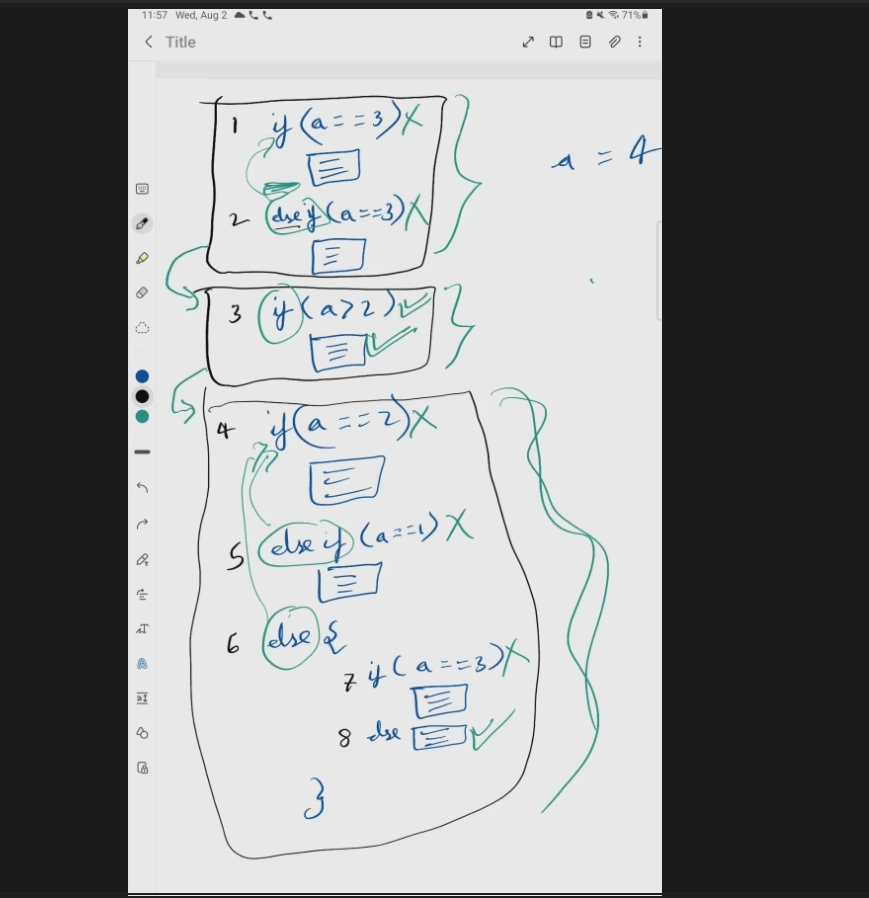 11:57 Wed, Aug 2 71%
Title
1 if (a==3) X
a = 4
2 else if (a==3) X
3 if (a>2)
4 if (a==2) X
5 else if (a==1) X
6 else {
7 if (a==3) X
8 else
}